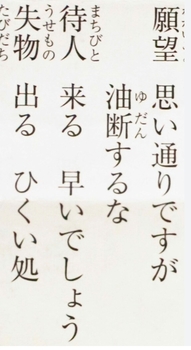 願望 思い通りですが
油断するな
ゆだん
待人 来る 早いでしょう
まちびと
失物 出る ひくい処
うせもの
たびだち